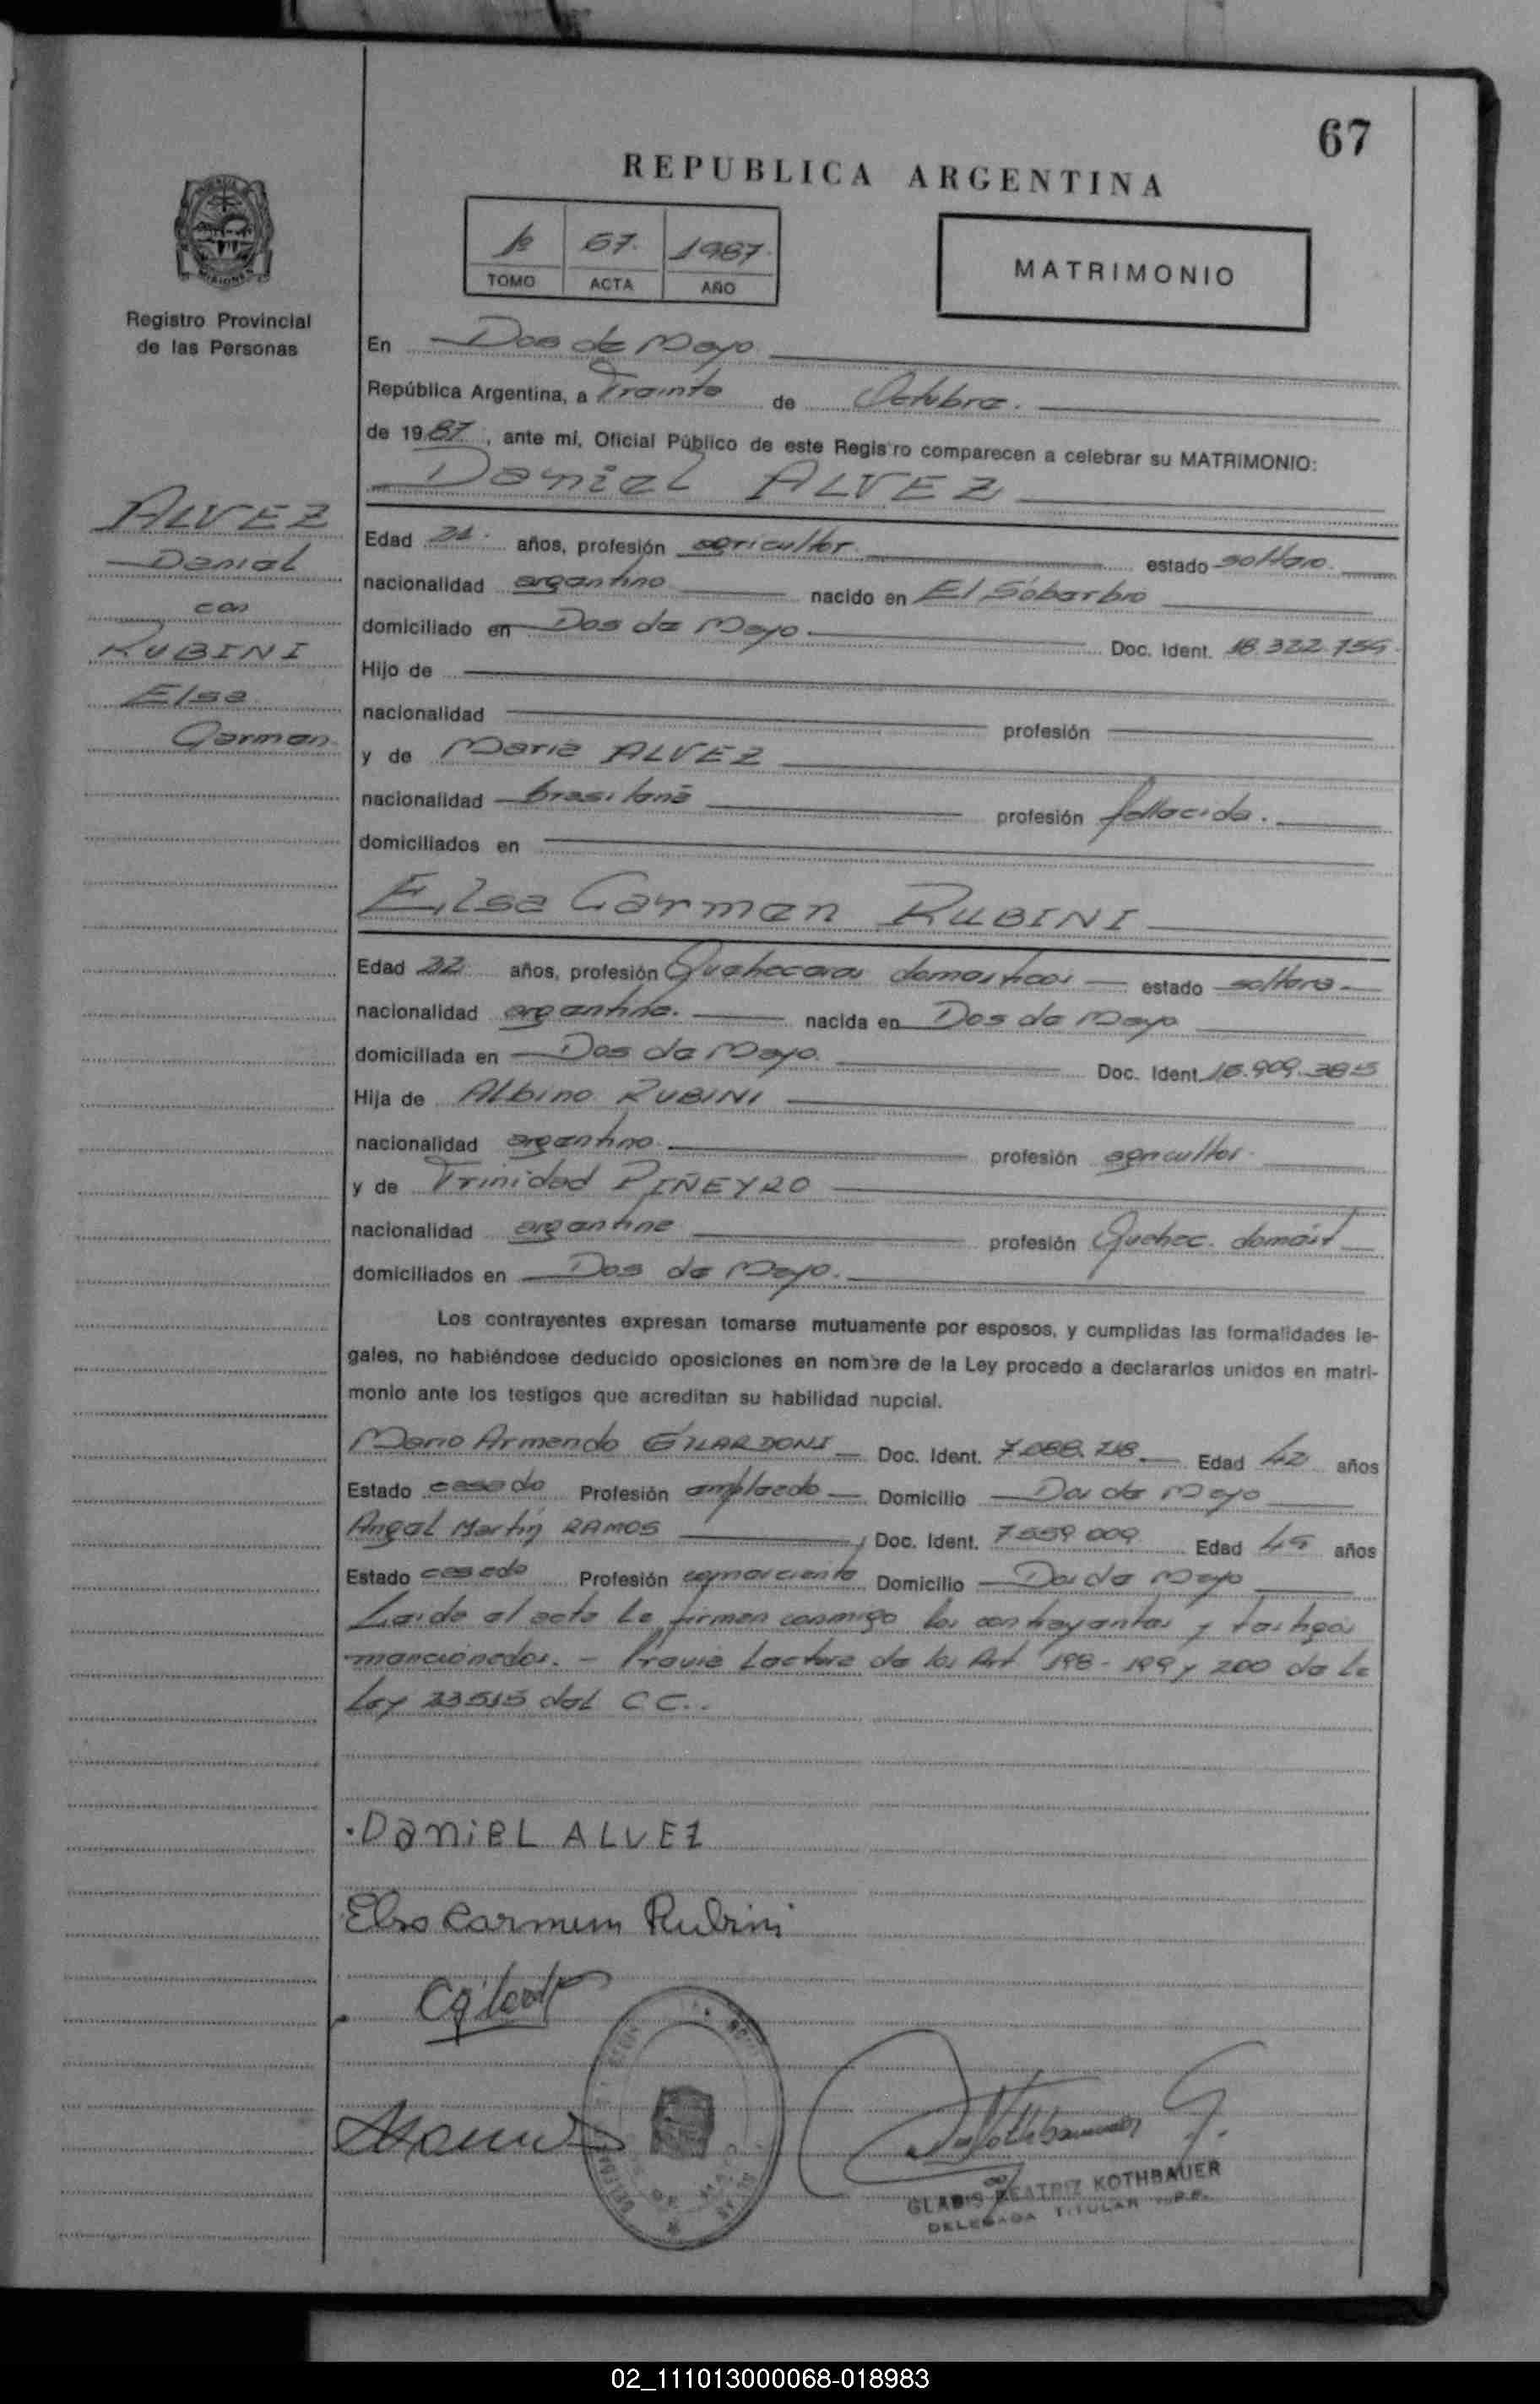 67
REPUBLICA ARGENTINA
1º 67. 1987.
TOMO ACTA AÑO
MATRIMONIO
Registro Provincial
de las Personas
En Dos de Mayo
República Argentina, a Treinta de Octubre.
de 1987, ante mí, Oficial Público de este Registro comparecen a celebrar su MATRIMONIO:
Daniel ALVEZ
ALVEZ
Daniel
con
RUBINI
Elsa
Carmen
Edad 21. años, profesión agricultor estado soltero.
nacionalidad argentino nacido en El Soberbio
domiciliado en Dos de Mayo Doc. Ident. 18.322.754
Hijo de
nacionalidad profesión
y de Maria ALVEZ
nacionalidad brasilena profesión fallecida.
domiciliados en
Elsa Carmen RUBINI
Edad 22 años, profesión Quehaceres domesticos estado soltera
nacionalidad argentina. nacida en Dos de Mayo
domiciliada en Dos de Mayo. Doc. Ident. 16.909.385
Hija de Albino RUBINI
nacionalidad argentino. profesión agricultor.
y de Trinidad PIÑEYRO
nacionalidad argentina profesión Quehac. domést
domiciliados en Dos de Mayo.
Los contrayentes expresan tomarse mutuamente por esposos, y cumplidas las formalidades le-
gales, no habiéndose deducido oposiciones en nombre de la Ley procedo a declararlos unidos en matri-
monio ante los testigos que acreditan su habilidad nupcial.
Mario Armando GILARDONI Doc. Ident. 7.088.718 Edad 42 años
Estado casado Profesión empleado Domicilio Dos de Mayo
Angel Martín RAMOS Doc. Ident. 7.559.009 Edad 45 años
Estado casado Profesión comerciante Domicilio Dos de Mayo
Leída el acta la firman conmigo los contrayentes y testigos
mencionados. - Previa Lectura de los Art. 198 - 199 y 200 de la
Ley 23515 del C C..
DANiEL ALVEZ
Elsa Carmem Rubini
GLADIS BEATRIZ KOTHBAUER
DELEGADA TITULAR R.P.P.
02_111013000068-018983